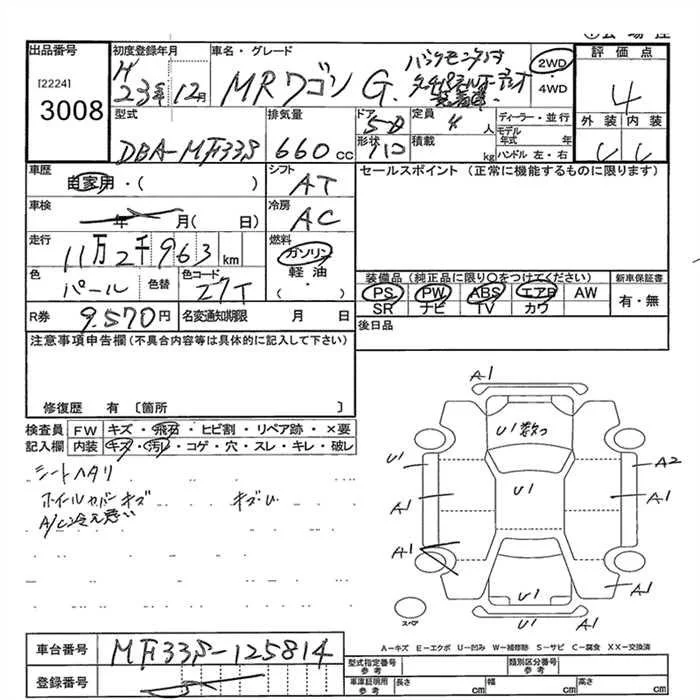 出品番号 初度登録年月 車名・グレード 評価点
[2224] 3008
H 23年 12月 MRワゴン G. 2WD ・ 4WD 4
外装 内装
型式 排気量 ドア 定員 ディーラー・並行
DBA-MF33S 660cc 5 4人 モデル年式 年
形状 積載 kg ハンドル 左・右
車歴 シフト セールスポイント (正常に機能するものに限ります)
自家用・( ) AT
車検 冷房
年 月( 日) AC
走行 燃料
11万2千963km ガソリン
色 色替 色コード 軽油・
パール Z7T ( )
装備品(純正品に限り〇をつけてください) 新車保証書
PS PW ABS エアB AW 有・無
SR ナビ TV カワ
R券 9.570円 名変通知期限 月 日
後日品
注意事項申告欄(不具合内容等は具体的に記入して下さい)
修復歴 有 〔箇所 〕
検査員 FW キズ・飛石・ヒビ割・リペア跡・×要
記入欄 内装 キズ・汚れ・コゲ・穴・スレ・キレ・破レ
シートヘタリ
ホイールカバーキズ キズ・U
A/C冷え悪い
A1
U1数つ
U1 A2
U1
A1 A1
A1
U1 A1
A1
スペア
A-キズ E-エクボ U-凹み W-補修跡 S-サビ C-腐食 XX-交換済
車台番号 MF33S-125814
登録番号
型式指定番号 参考 類別区分番号 参考
車庫証明用 参考 長さ cm 幅 cm 高さ cm